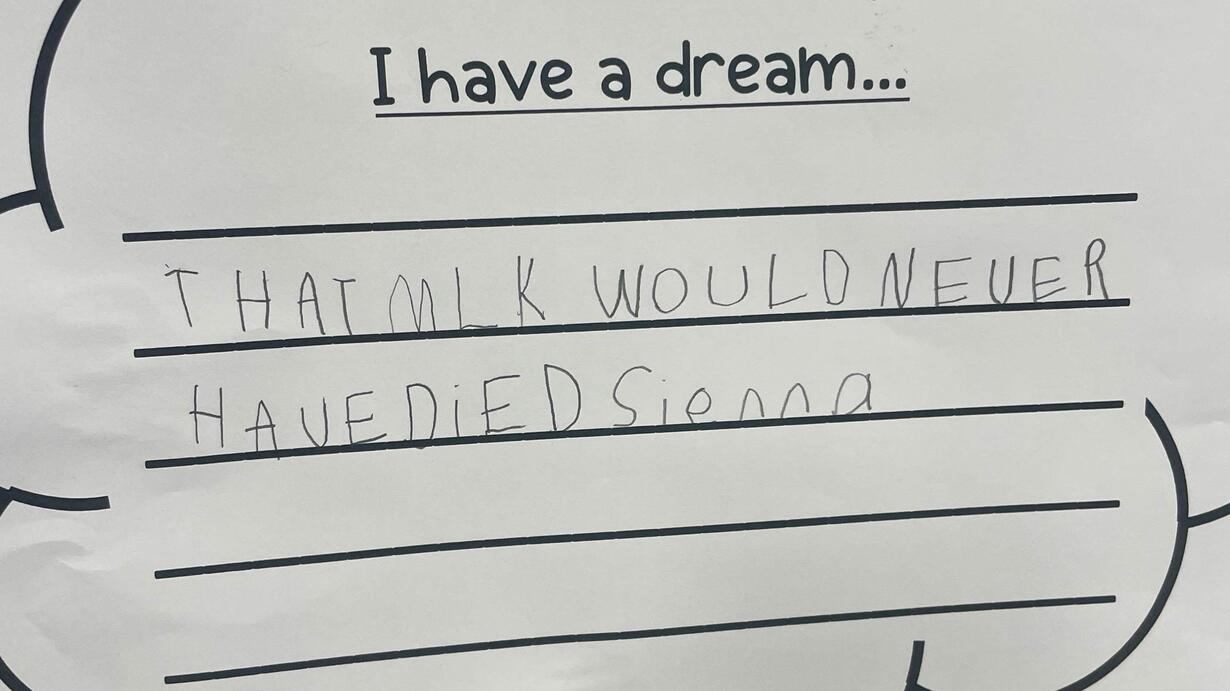 I have a dream...
THAT MLK WOULD NEVER
HAVE DiED Sienna